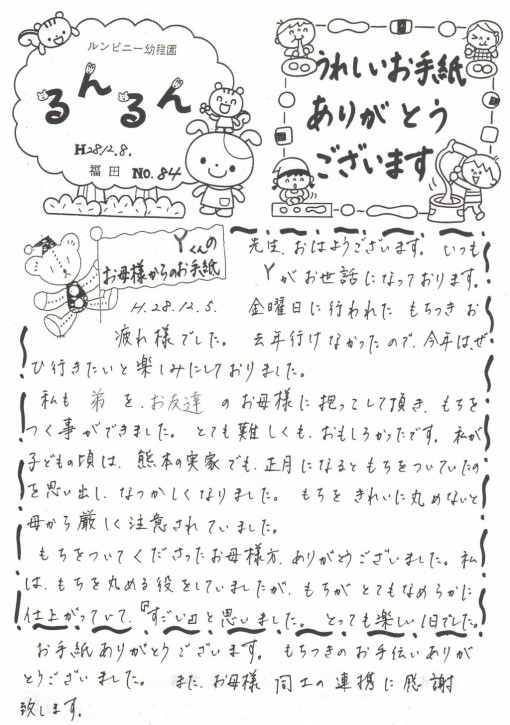 ルンビニー幼稚園
るんるん
H28.12.8.
福田 NO.84
うれしいお手紙
ありがとう
ございます
Yくんの
お母様からのお手紙
H.28.12.5.
先生、おはようございます。いつも
Yがお世話になっております。
金曜日に行われた もちつき お
疲れ様でした。 去年行けなかったので、今年は、ぜ
ひ行きたいと楽しみにしておりました。
私も 弟 を、お友達 のお母様に抱っこして頂き、もちを
つく事ができました。とても難しくも、おもしろかったです。私が
子どもの頃は、熊本の実家でも、正月になるともちをついていたの
を思い出し、なつかしくなりました。 もちをきれいに丸めないと
母から厳しく注意されていました。
もちをついてくださったお母様方、ありがとうございました。私
は、もちを丸める役をしていましたが、もちが とてもなめらかに
仕上がっていて、『すごい』と思いました。 とっても楽しい1日でした。
お手紙ありがとうございます。 もちつきのお手伝いありが
とうございました。 また、お母様 同士の連携に感謝
致します。